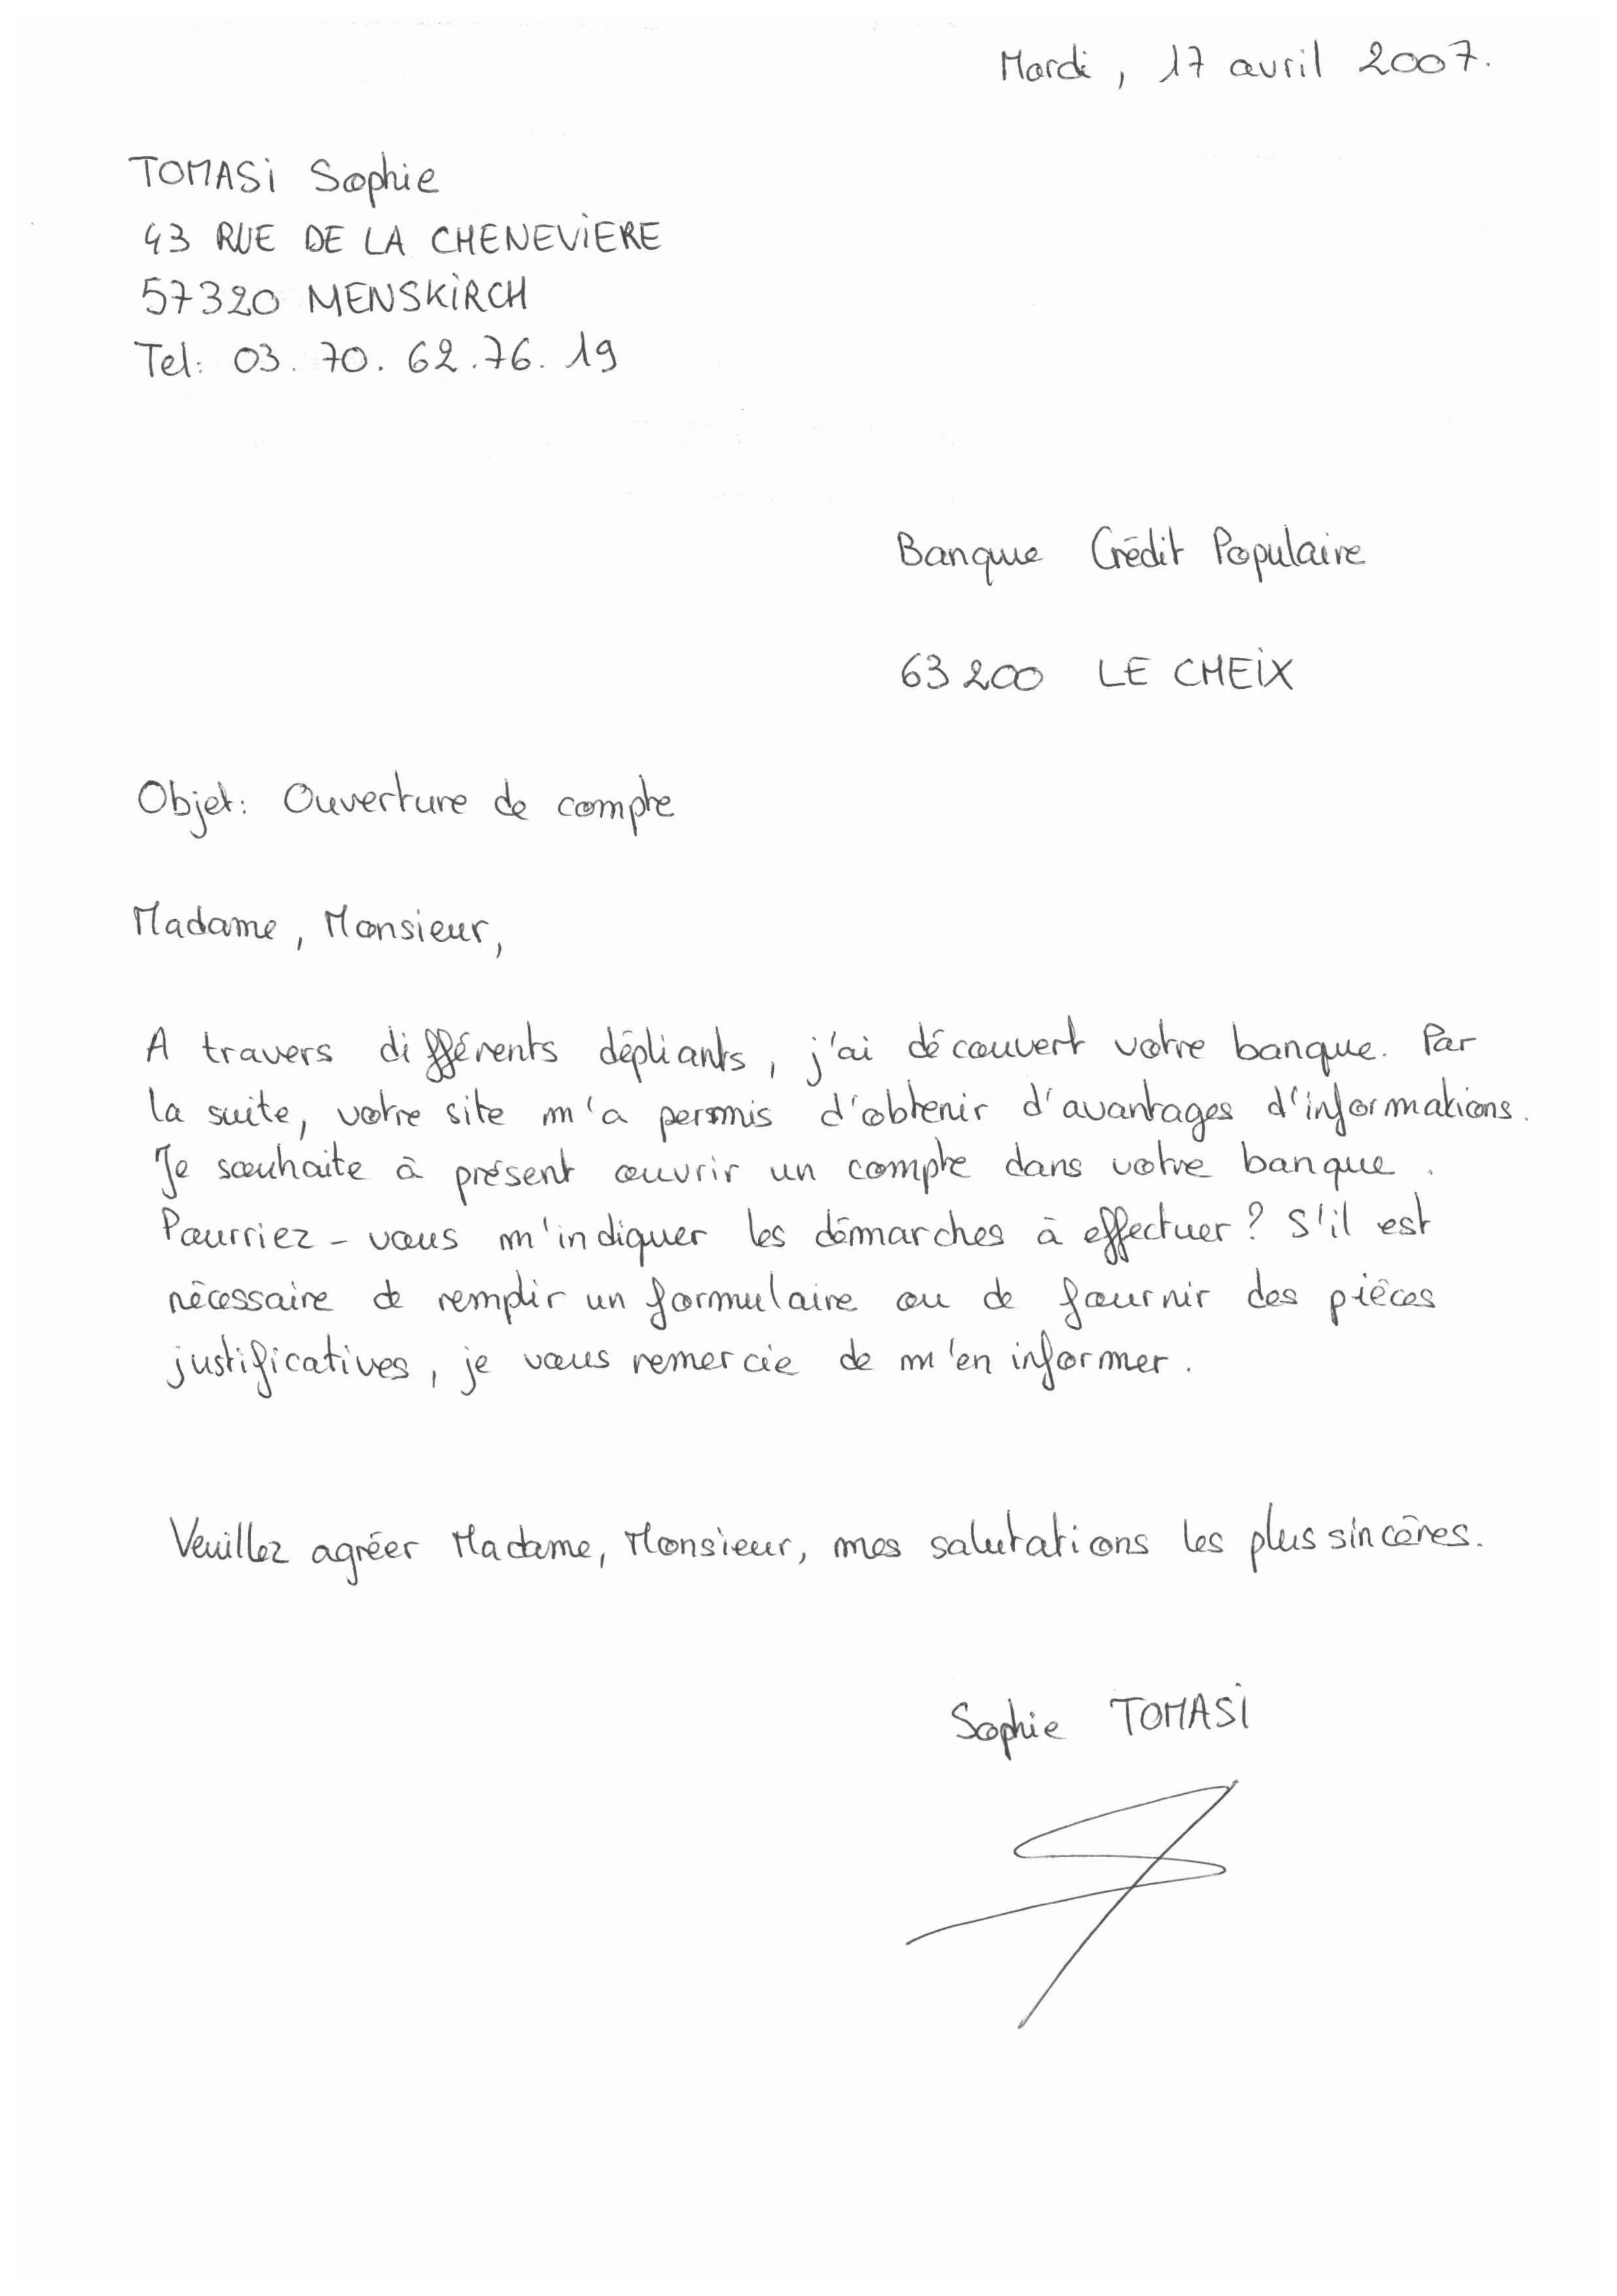 Mardi, 17 avril 2007.
TOMASi Sophie
43 RUE DE LA CHENEViERE
57320 MENSKiRCH
Tel: 03. 70. 62.76. 19
Banque Crédit Populaire
63200 LE CHEiX
Objet: Ouverture de compte
Madame, Monsieur,
A travers différents dépliants, j'ai découvert votre banque. Par
la suite, votre site m'a permis d'obtenir d'avantages d'informations.
Je souhaite à présent ouvrir un compte dans votre banque.
Pourriez-vous m'indiquer les démarches à effectuer? S'il est
nécessaire de remplir un formulaire ou de fournir des pièces
justificatives, je vous remercie de m'en informer.
Veuillez agréer Madame, Monsieur, mes salutations les plus sincères.
Sophie TOMASi